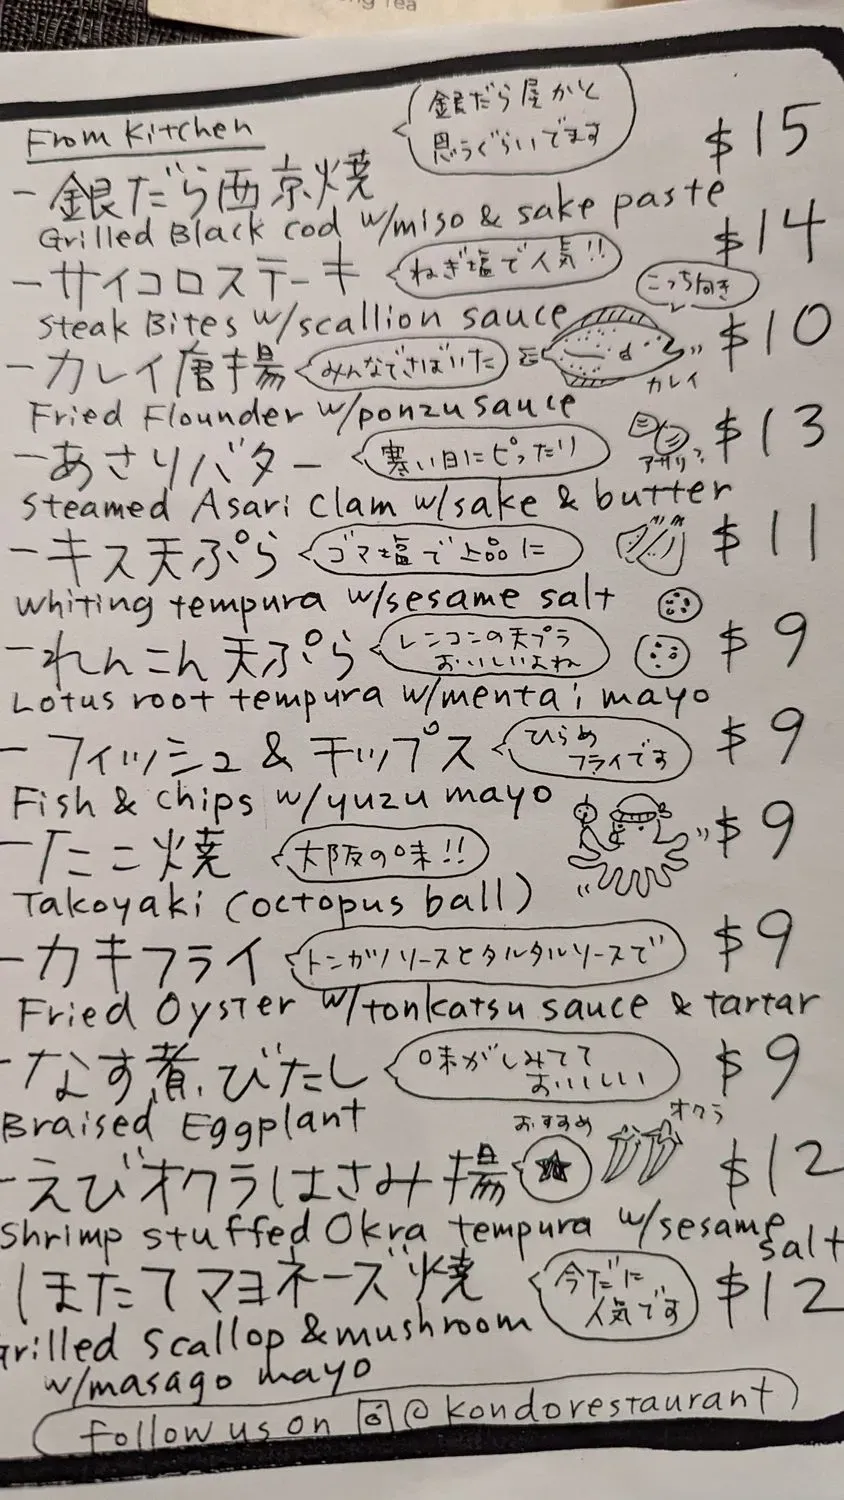 From Kitchen
銀だら屋かと
思うぐらいでます
$15
- 銀だら西京焼
Grilled Black cod w/miso & sake paste
$14
- サイコロステーキ
ねぎ塩で人気!!
こっち向き
Steak Bites w/scallion sauce
$10
- カレイ唐揚
みんなでさばいた
カレイ
Fried Flounder w/ponzu sauce
$13
- あさりバター
寒い日にピッタリ
アサリ?
Steamed Asari Clam w/sake & butter
$11
- キス天ぷら
ゴマ塩で上品に
Whiting tempura w/sesame salt
$9
- れんこん天ぷら
レンコンの天プラ
おいしいよね
Lotus root tempura w/mentai mayo
$9
- フィッシュ & チップス
ひらめ
フライです
Fish & chips w/yuzu mayo
$9
- たこ焼
大阪の味!!
Takoyaki (octopus ball)
$9
- カキフライ
トンカツソースとタルタルソースで
Fried Oyster w/tonkatsu sauce & tartar
$9
- なす煮びたし
味がしみてて
おいしいい
Braised Eggplant
おすすめ
オクラ
$12
- えびオクラはさみ揚
Shrimp stuffed Okra tempura w/sesame
salt
$12
ほたてマヨネーズ焼
今だに
人気です
Grilled Scallop & mushroom
w/masago mayo
follow us on @kondorestaurant